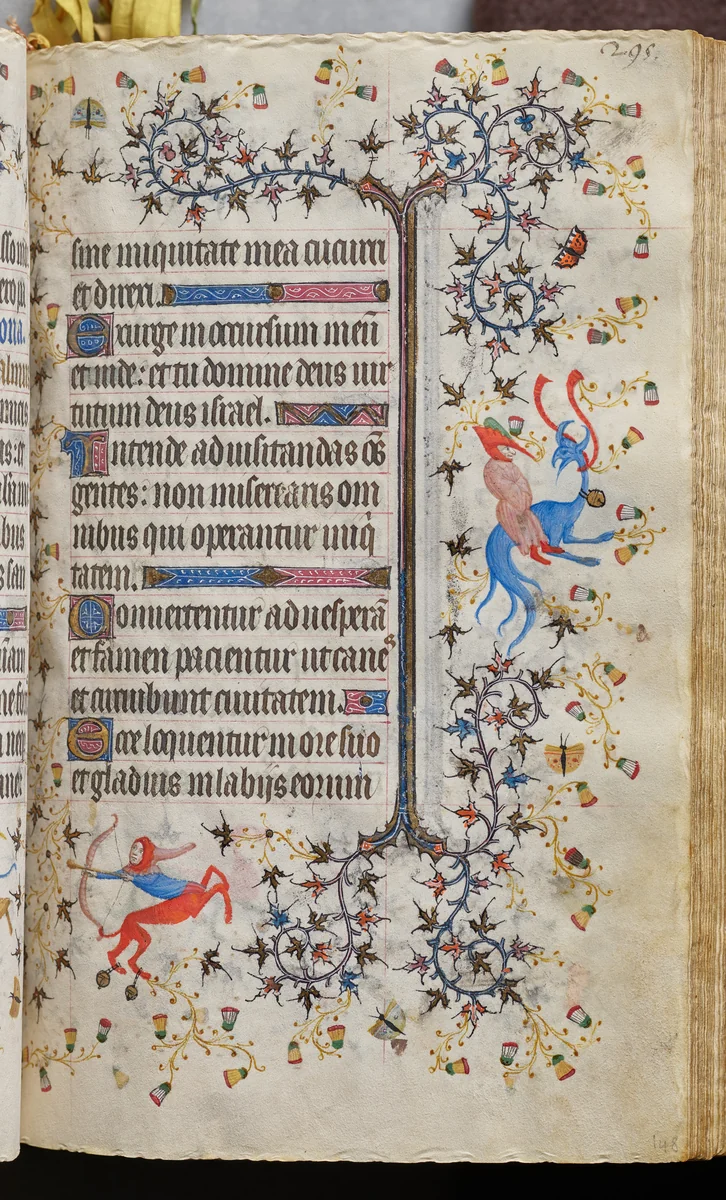 295.
sine iniquitate mea cucurri
et direxi.
Exurge in occursum meū
et vide: et tu domine deus vir
tutum deus israel.
Intende ad visitandas oēs
gentes: non miserearis om
nibus qui operantur iniq
tatem.
Convertentur ad vesperā
et famen pacientur ut canes
et circuibunt civitatem.
Ecce loquentur in ore suo
et gladius in labijs eorum
148